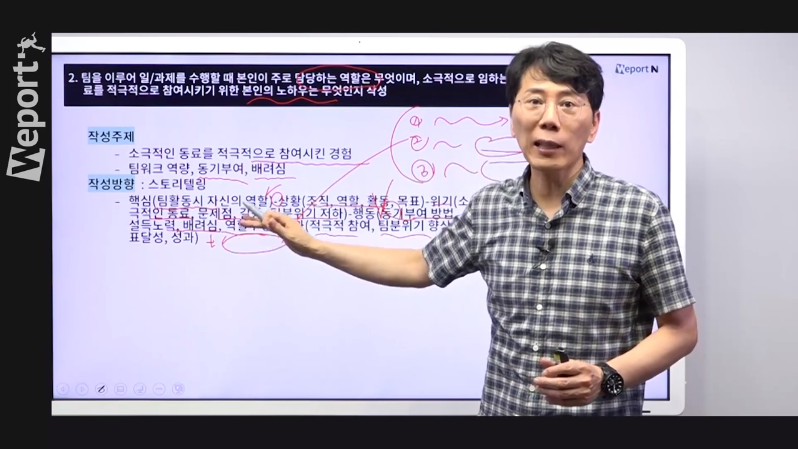 Weport
Weport N
2. 팀을 이루어 일/과제를 수행할 때 본인이 주로 담당하는 역할은 무엇이며, 소극적으로 임하는
료를 적극적으로 참여시키기 위한 본인의 노하우는 무엇인지 작성
① ② ③
작성주제
- 소극적인 동료를 적극적으로 참여시킨 경험
- 팀워크 역량, 동기부여, 배려심
작성방향 : 스토리텔링
- 핵심(팀활동시 자신의 역할)-상황(조직, 역할, 활동, 목표)-위기(소
극적인 동료, 문제점, 팀분위기 저하)-행동(동기부여 방법,
설득노력, 배려심, (적극적 참여, 팀분위기 향상
표달성, 성과)